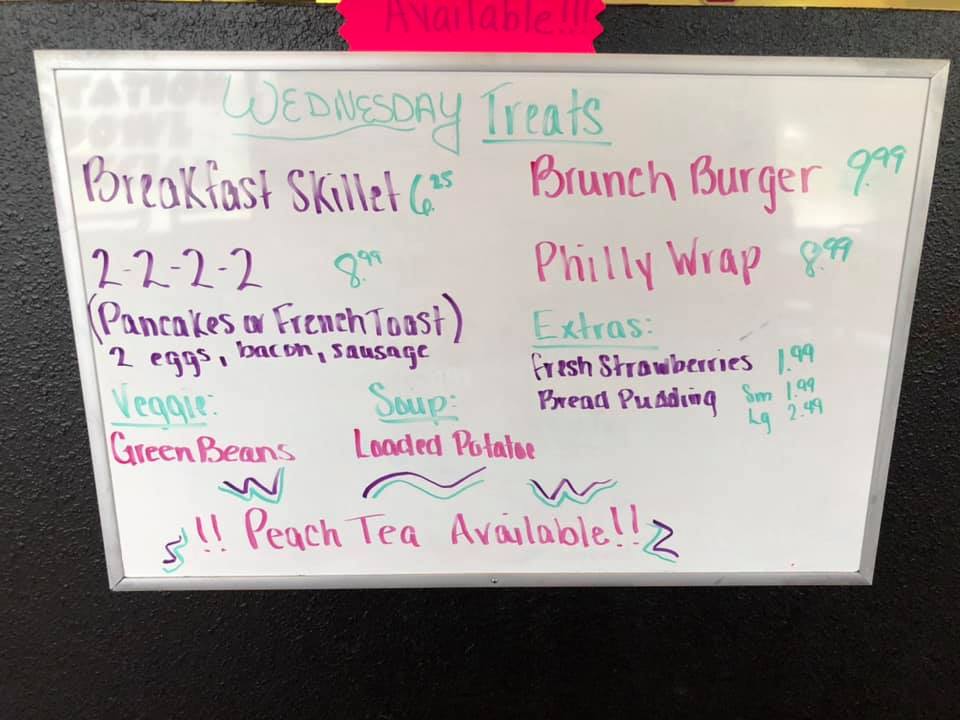 Available!!!
WEDNESDAY Treats
Breakfast Skillet 6.25
2-2-2-2 8.99
(Pancakes or French Toast)
2 eggs, bacon, sausage
Veggie:
Green Beans
Soup:
Loaded Potatoe
Brunch Burger 9.99
Philly Wrap 8.99
Extras:
Fresh Strawberries 1.99
Bread Pudding Sm 1.99
Lg 2.49
!! Peach Tea Available!!